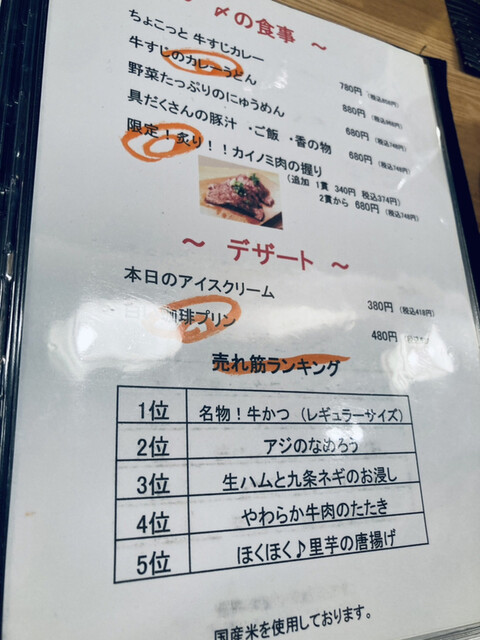 〆の食事 ~
ちょこっと 牛すじカレー 780円 (税込858円)
牛すじのカレーうどん 880円 (税込968円)
野菜たっぷりのにゅうめん 680円 (税込748円)
具だくさんの豚汁 ・ご飯 ・香の物 680円 (税込748円)
限定!炙り!!カイノミ肉の握り
(追加 1貫 340円 税込374円)
2貫から 680円 (税込748円)
~ デザート ~
本日のアイスクリーム 380円 (税込418円)
珈琲プリン 480円
売れ筋ランキング
1位 名物!牛かつ (レギュラーサイズ)
2位 アジのなめろう
3位 生ハムと九条ネギのお浸し
4位 やわらか牛肉のたたき
5位 ほくほく♪里芋の唐揚げ
国産米を使用しております。